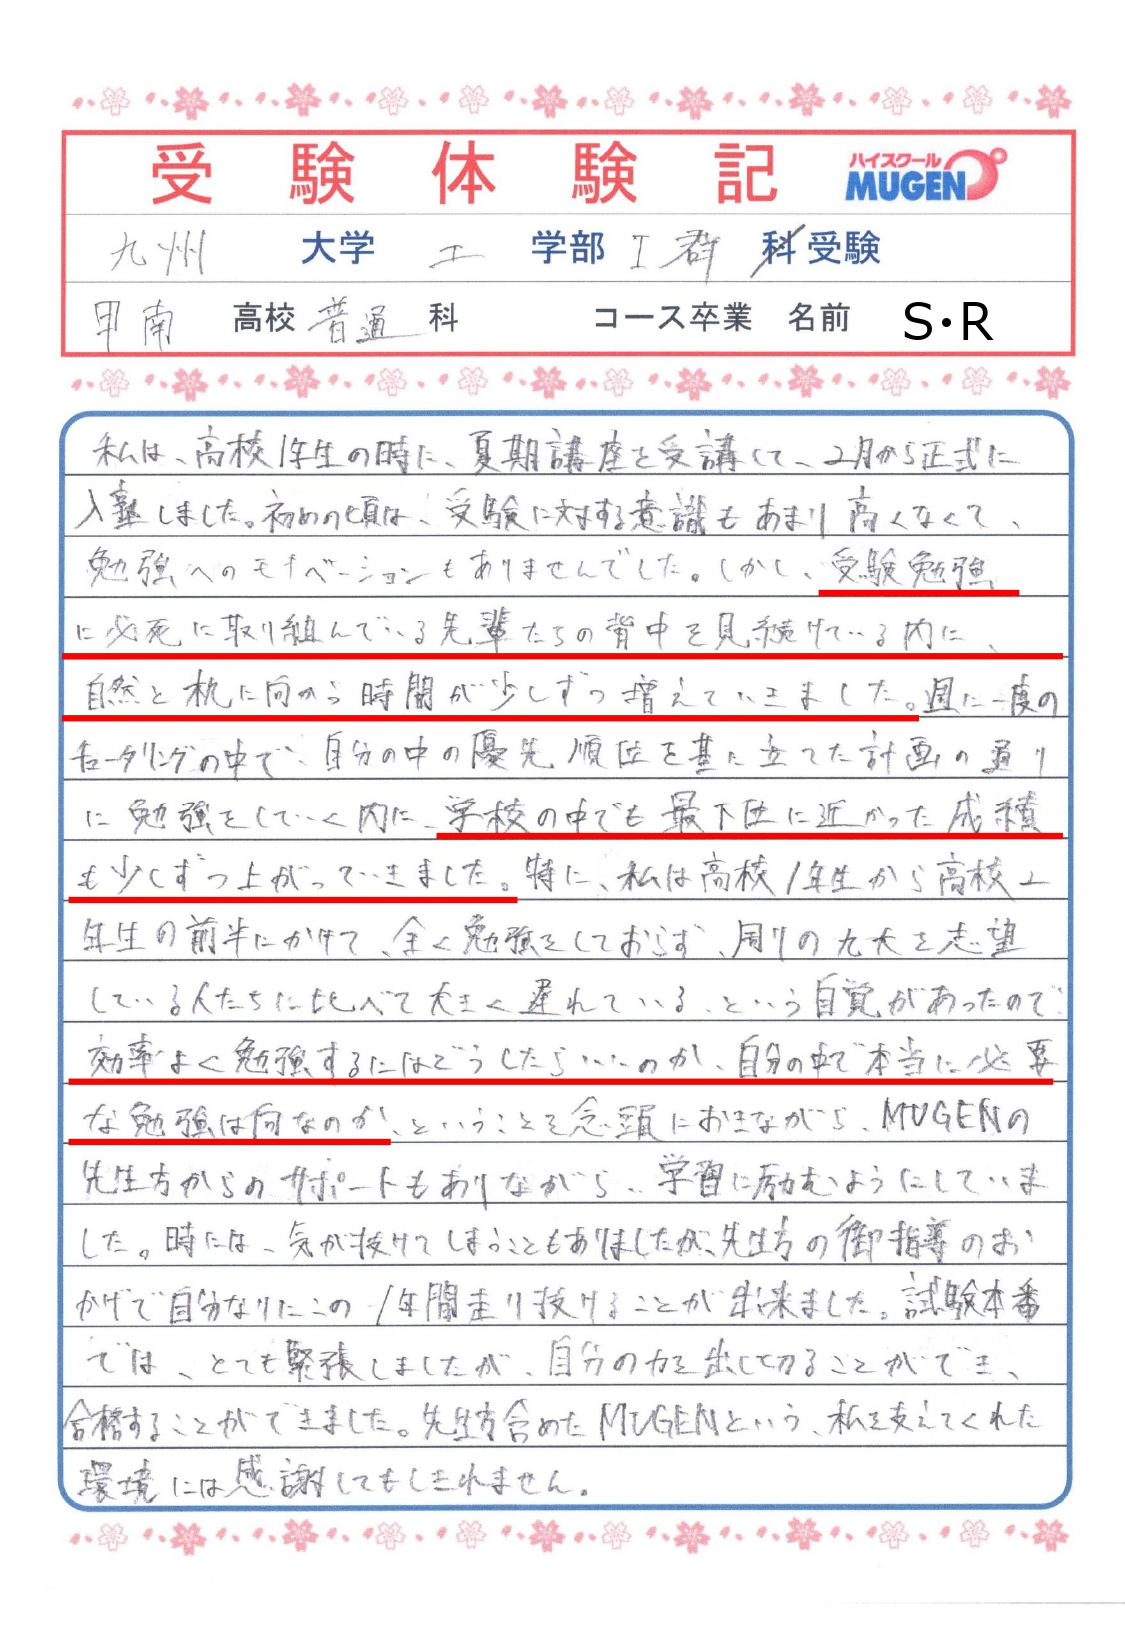 受験体験記 ハイスクール MUGEN
九州 大学 工 学部 I群 科 受験
甲南 高校 普通 科 コース卒業 名前 S・R
私は、高校1年生の時に、夏期講座を受講して、2月から正式に
入塾しました。初めの頃は、受験に対する意識もあまり高くなくて、
勉強へのモチベーションもありませんでした。しかし、受験勉強
に必死に取り組んでいる先輩たちの背中を見続けている内に、
自然と机に向かう時間が少しずつ増えていきました。週に一度の
チュータリングの中で、自分の中の優先順位を基に立てた計画の通り
に勉強をしていく内に、学校の中でも最下位に近かった成績
も少しずつ上がっていきました。特に、私は高校1年生から高校2
年生の前半にかけて、全く勉強をしておらず、周りの九大を志望
している人たちに比べて大きく遅れている、という自覚があったので
効率よく勉強するにはどうしたらいいのか、自分の中で本当に必要
な勉強は何なのか、ということを念頭におきながら、MUGENの
先生方からのサポートもありながら、学習に励むようにしていま
した。時には、気が抜けてしまうこともありましたが、先生方の御指導のお
かげで自分なりにこの1年間走り抜けることが出来ました。試験本番
では、とても緊張しましたが、自分の力を出し切ることができ、
合格することができました。先生方含めたMUGENという、私を支えてくれた
環境には感謝してもしきれません。